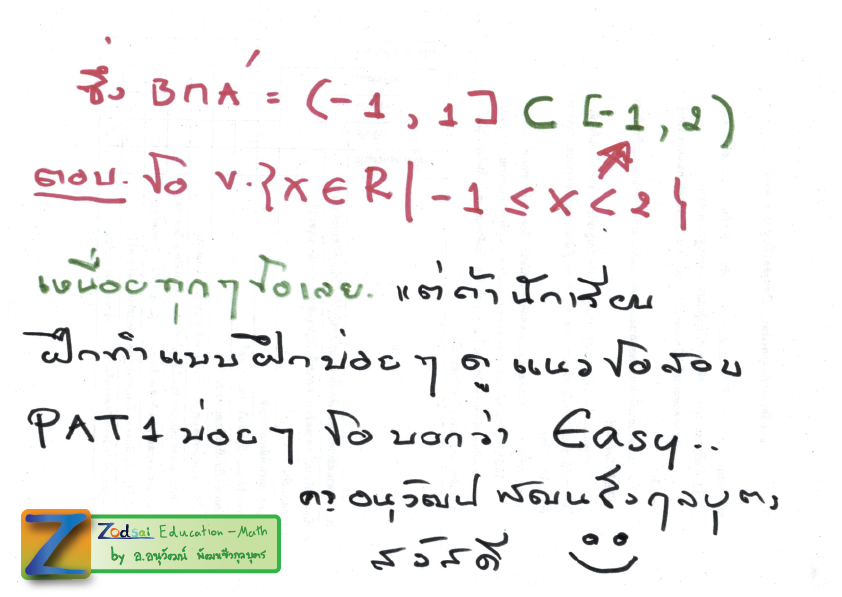 ซึ่ง B∩A' = (-1, 1] ⊂ [-1, 2)
ตอบ. ข้อ ข. {x ∈ R | -1 ≤ x < 2}
เหนื่อยทุกๆข้อเลย. แต่ถ้านักเรียน
ฝึกทำแบบฝึกบ่อยๆ ดูแนวข้อสอบ
PAT1 บ่อยๆ ขอบอกว่า Easy..
อนุวัฒน์
สวัสดี
Z Zodsai Education - Math
by อ.อนุวัฒน์ พัฒนชีวกุลบุตร